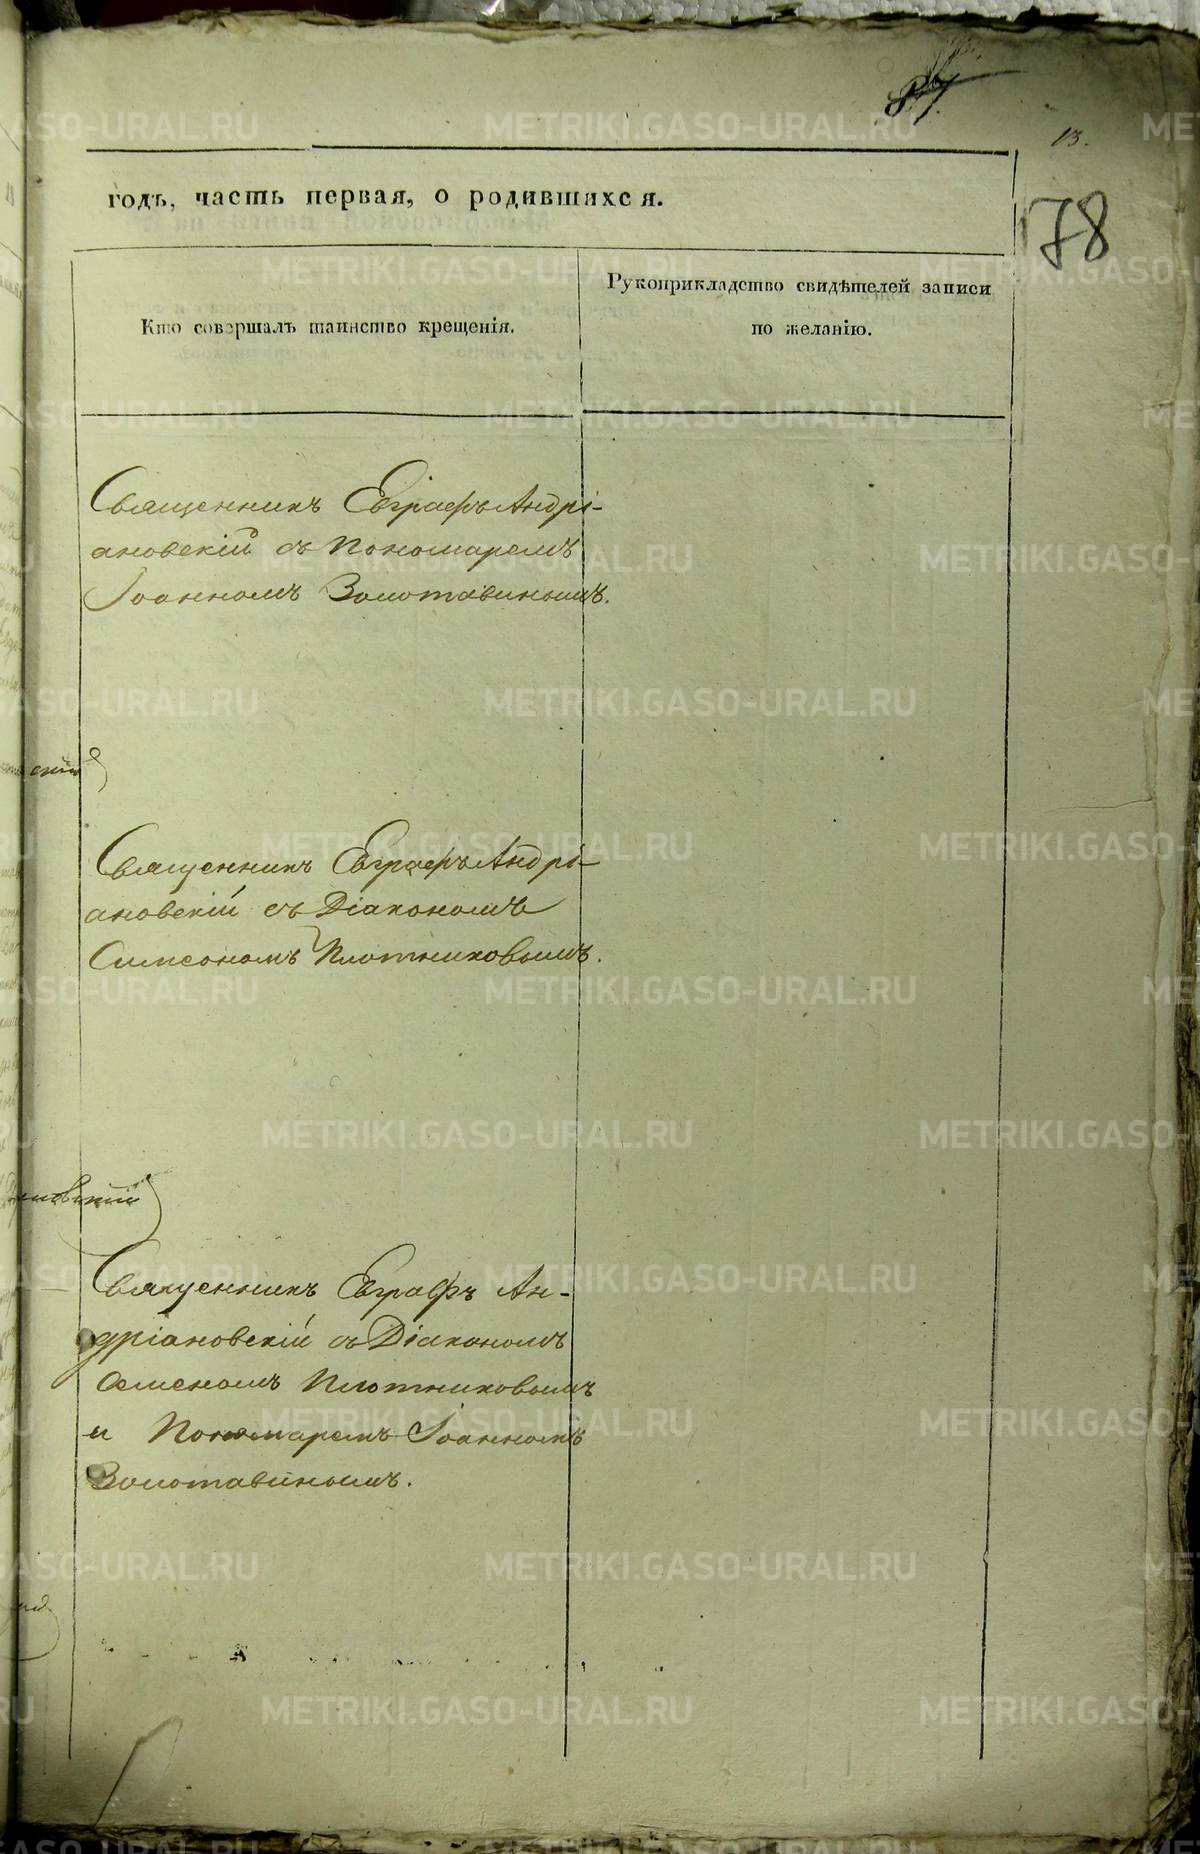 13.
78
годъ, часть первая, о родившихся.
Кто совершалъ таинство крещенія.
Рукоприкладство свидѣтелей записи
по желанію.
Священникъ Евграфъ Андрі-
ановскій съ Пономаремъ
Іоанномъ Золотавинымъ.
скій
Священникъ Евграфъ Андрі-
ановскій съ Діакономъ
Симеономъ Плотниковымъ.
новскій
Священникъ Евграфъ Ан-
дріановскій съ Діакономъ
Семеномъ Плотниковымъ
и Пономаремъ Іоанномъ
Золотавинымъ.
METRIKI.GASO-URAL.RU